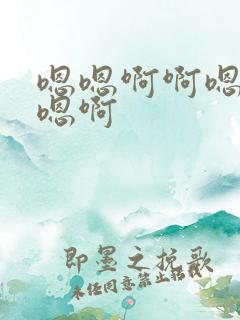 嗯嗯啊啊嗯
嗯啊
即墨之挽歌
未经同意禁止转载